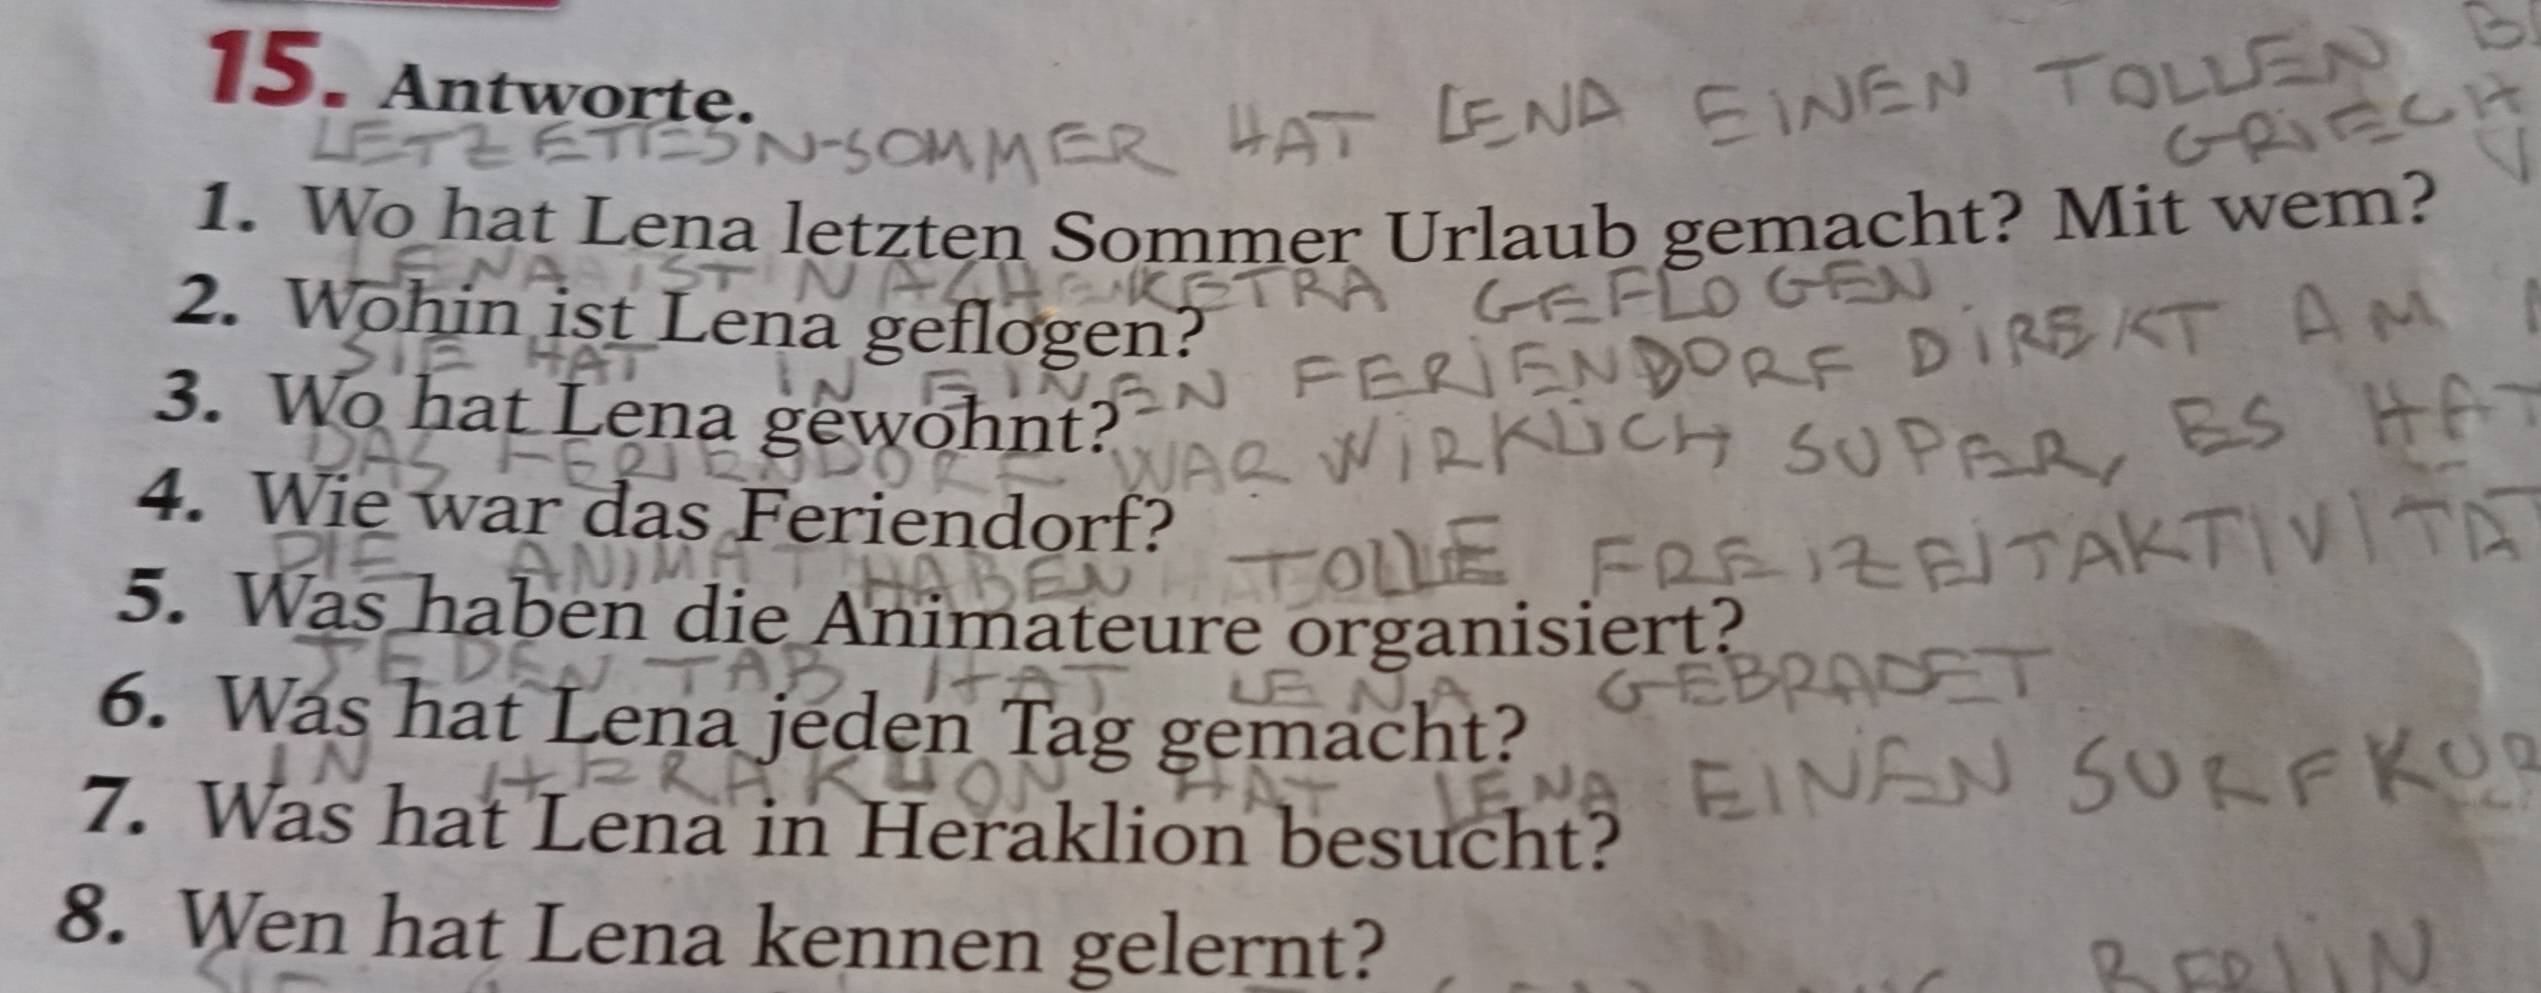 15. Antworte.
SOMMER HAT LENA EINEN TOLLEN
GRIECH
1. Wo hat Lena letzten Sommer Urlaub gemacht? Mit wem?
LENA IST NACH KETRA GEFLOGEN
2. Wohin ist Lena geflogen?
SIE HAT IN EINEN FERIENDORF DIREKT AM
3. Wo hat Lena gewohnt?
DAS FERIENDORF WAR WIRKLICH SUPER, ES HAT
4. Wie war das Feriendorf?
DIE ANIMAT HABEN TOLLE FREIZEITAKTIVITÄT
5. Was haben die Animateure organisiert?
JEDEN TAB HAT LENA GEBRADET
6. Was hat Lena jeden Tag gemacht?
IN HERAKLION HAT LENA EINEN SURFKUR
7. Was hat Lena in Heraklion besucht?
8. Wen hat Lena kennen gelernt?
SIE BERLIN